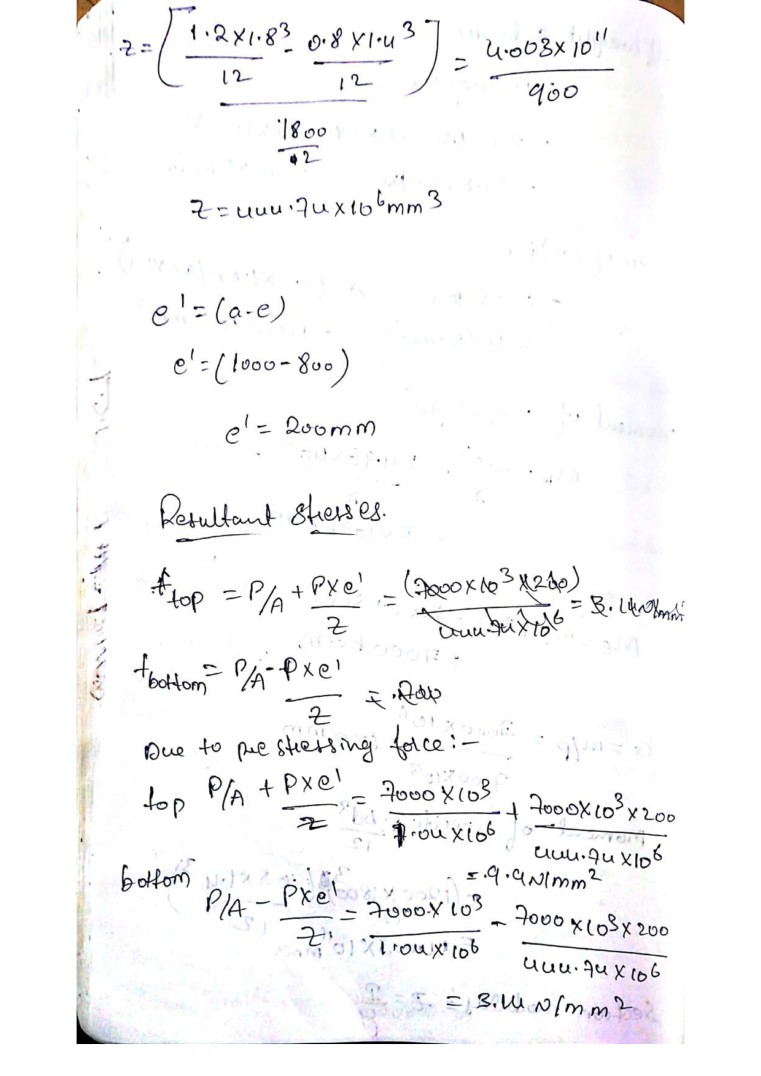 z = [ 1.2×1.8³/12 - 0.8×1.4³/12 ] / 1800/2 = 4.003×10¹¹/900
Z = 444.74×10⁶mm³
e' = (a-e)
e' = (1000-800)
e' = 200mm
Resultant stresses.
f top = P/A + P×e'/Z = (7000×10³×200)/444.74×10⁶ = 3.14N/mm²
f bottom = P/A - P×e'/Z =
Due to pre stressing force:-
top P/A + P×e'/Z = 7000×10³/1.04×10⁶ + 7000×10³×200/444.74×10⁶
= 9.9N/mm²
bottom P/A - P×e'/Z = 7000×10³/1.04×10⁶ - 7000×10³×200/444.74×10⁶
= 3.14 N/mm²